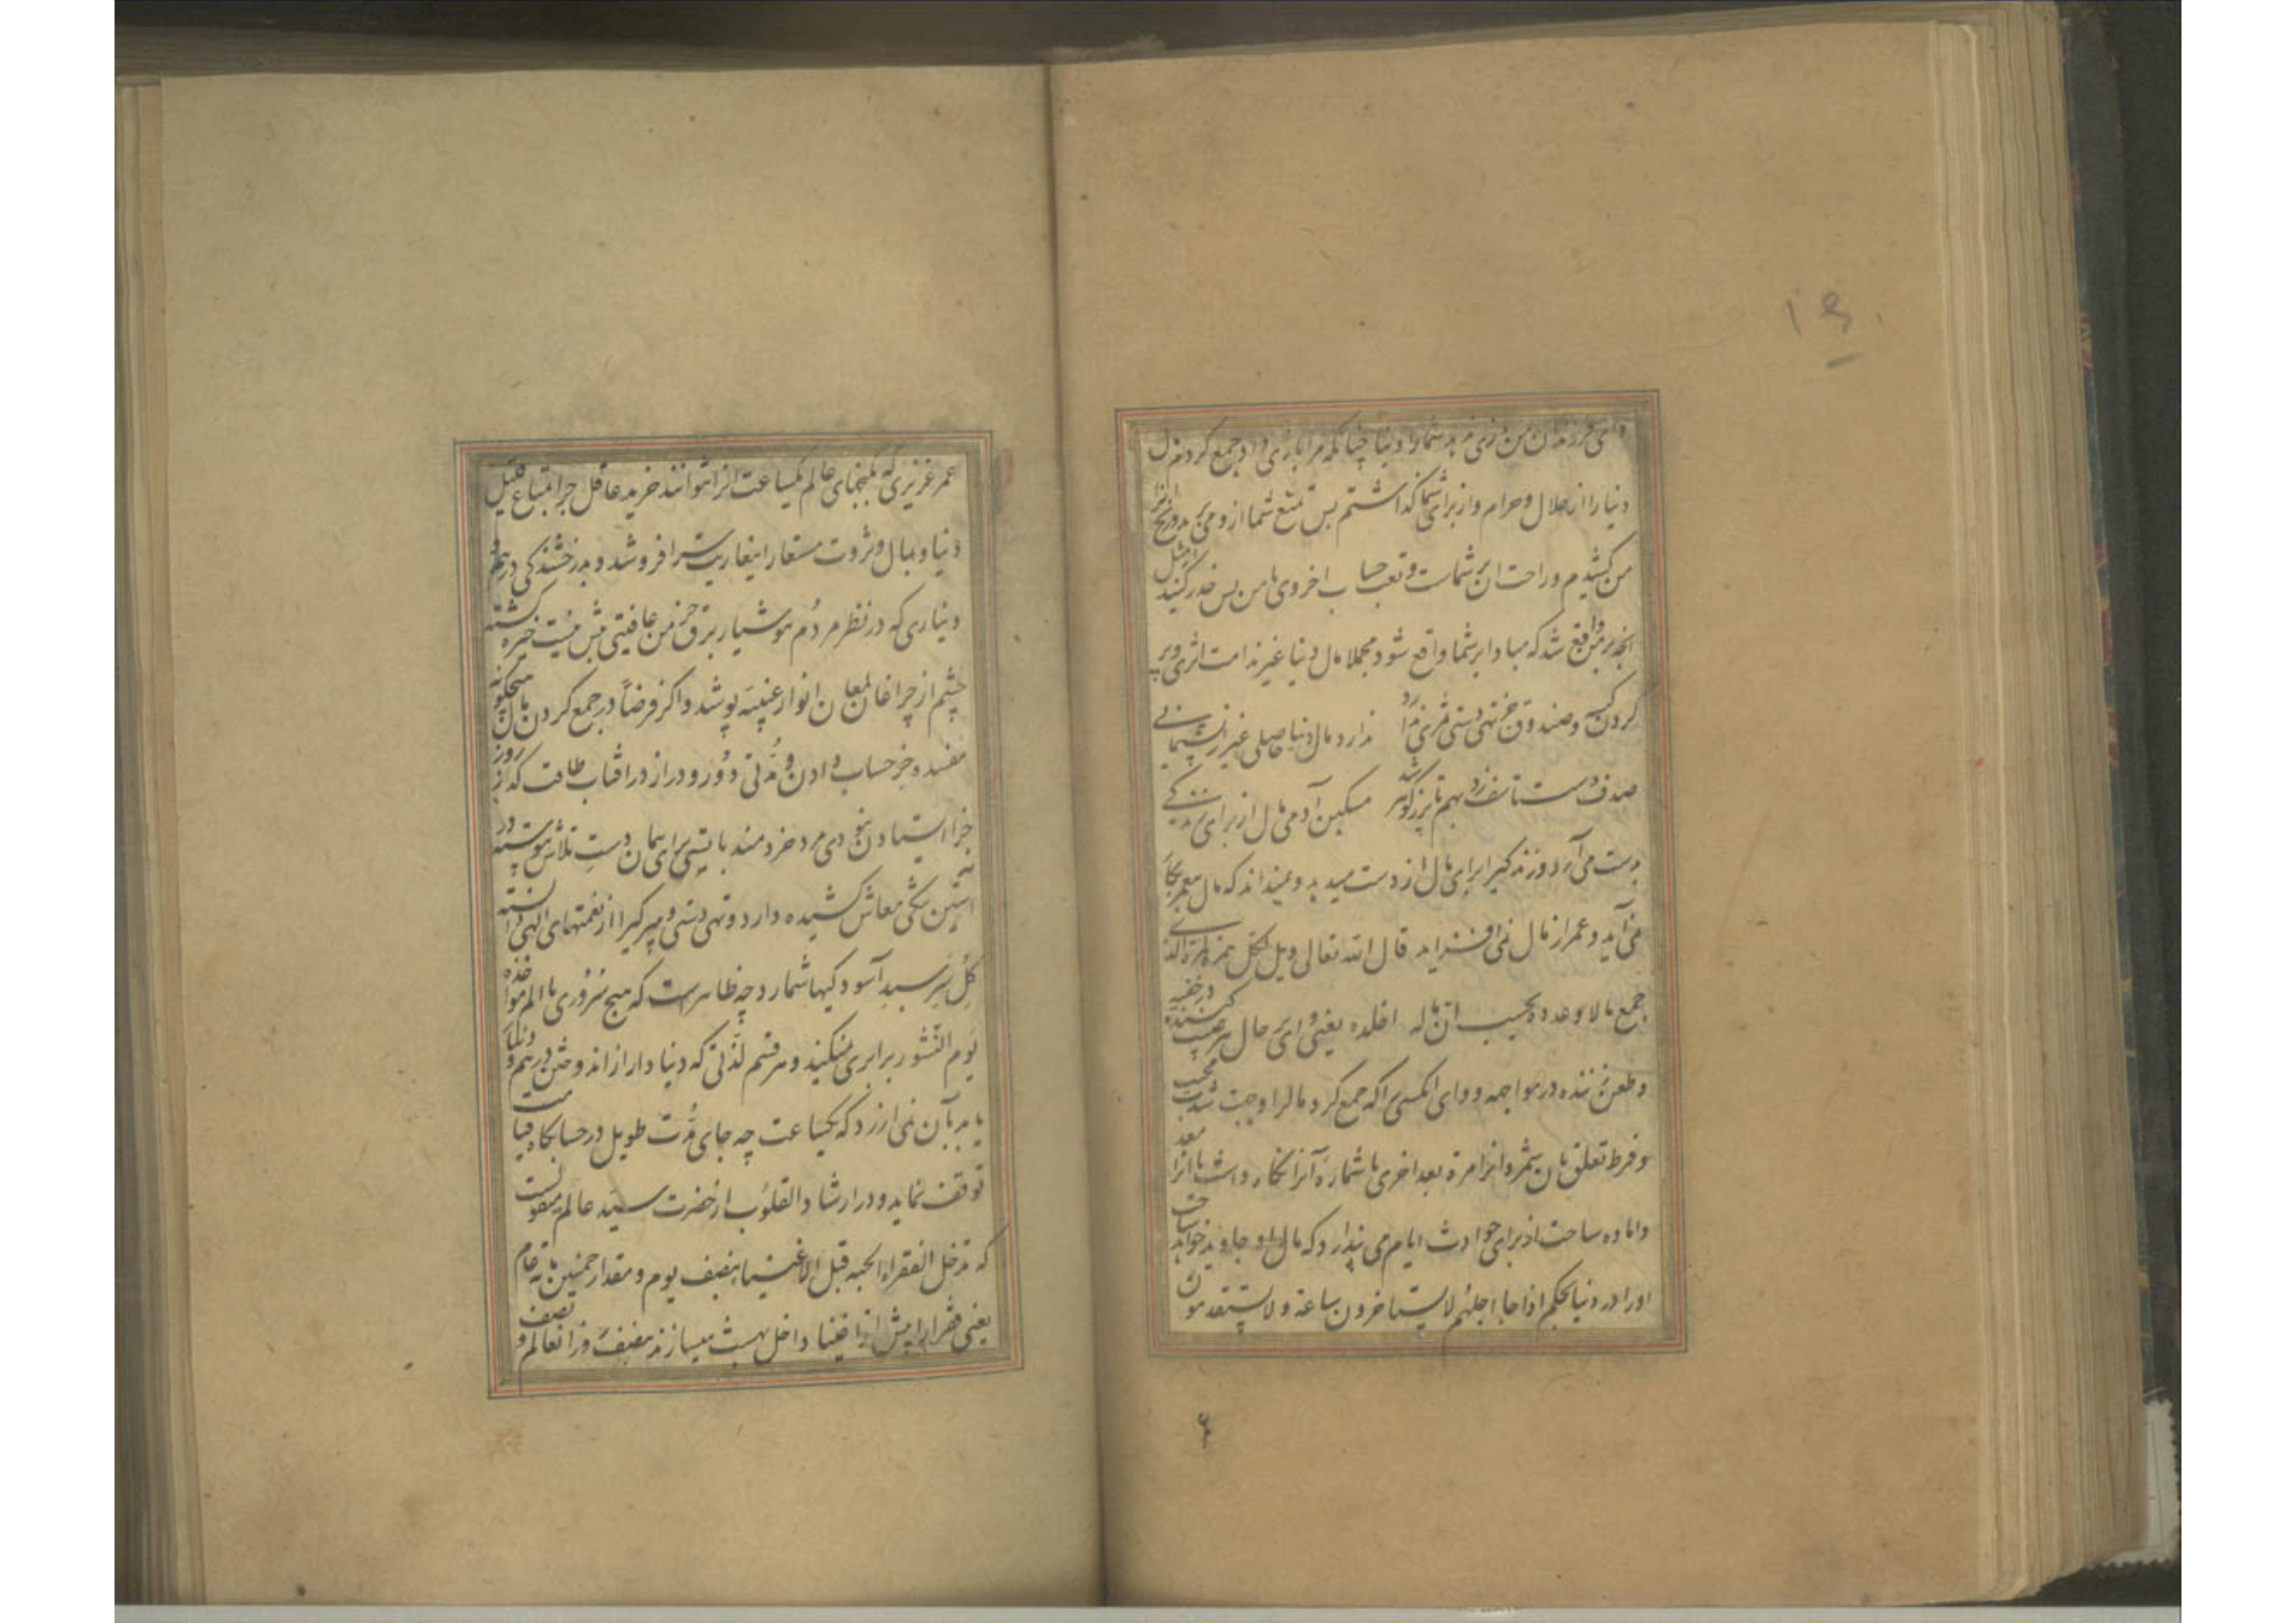 ۱۶۰
وای فرزندان من بازی ندهد شما را دنیا چنانکه مرا بازی داد و جمع کردم مال
دنیا را از حلال و حرام و از برای شما کذاشتم پس تمتع شما از وی می برید و رنج آنرا
من کشیدم و راحت ان بر شماست و تعب حساب اخروی با من پس حذر کنید از مثل
انچه بر من واقع شد که مبادا بر شما واقع شود مجملا مال دنیا غیر ندامت اثری و پر
کردن کیسه و صندوق جز تهی دستی ثمری ندارد ندارد مال دنیا حاصلی غیر از پشیمانی
صدف دست تاسف زد بهم تا پر ز گوهر شد مسکین آدمی مال از برای زندگی
بدست می آرد و زندگی را برای مال از دست میدهد و نمیداند که مال بعمر بجا
نمی آید و عمر از مال نمی افزاید قال الله تعالی ویل لکل همزة لمزة الذی
جمع مالا وعدده یحسب ان ماله اخلده یعنی وای بر حال هر عیب کننده در خفیه
و طعن زننده در مواجهه و وای انکسی را که جمع کرد مال را و جهت شدت محبت
و فرط تعلق بان شمرد انرا مرة بعد اخری یا شماره آنرا نگاه داشت یا انرا معد
و اماده ساخت از برای حوادث ایام می پندارد که مال او جاوید خواهد ساخت
او را در دنیا بحکم اذا جاء اجلهم لا یستاخرون ساعة ولا یستقدمون
عمر عزیزی که بکنجهای عالم یکساعت انرا نتوانند خرید عاقل چرا بمتاع قلیل
دنیا و بمال و ثروت مستعار اینعاریت سرا فروشد و بدرخشندکی درهم و
دیناری که در نظر مردم هوشیار برق خرمن عافیتی بیش نیست خیره کشته
چشم از چراغان لمعان انوار غیبیه پوشد و اکر فرضاً در جمع کردن مال هیچکونه
مفسده و جز حساب دادن و مدتی دور و دراز در افتاب طاقت کداز روز
جزا استادن نبودی مرد خردمند بایستی برای همان دست تلاش پیوسته در
استین تنکی معاش کشیده دارد و تهی دستی و را از نعمتهای الهی دانسته
کل سر سبد آسودکیها شمارد چه ظاهرست که هیچ سروری با الم مواخذه
یوم النشور برابری نمیکند و هر قسم لذتی که دنیا دار از اندوختن درهم و دینار
یابد بآن نمی ارزد که یکساعت چه جای مدت طویل در حسابکاه قیامت
توقف نماید و در ارشاد القلوب از حضرت سید عالم منقولست
که تدخل الفقراء الجنه قبل الاغنیا بنصف یوم و مقدار خمسین مایه عام
یعنی فقرا را پیش از اغنیا داخل بهشت میسازند بنصف روز انعالم و نصف